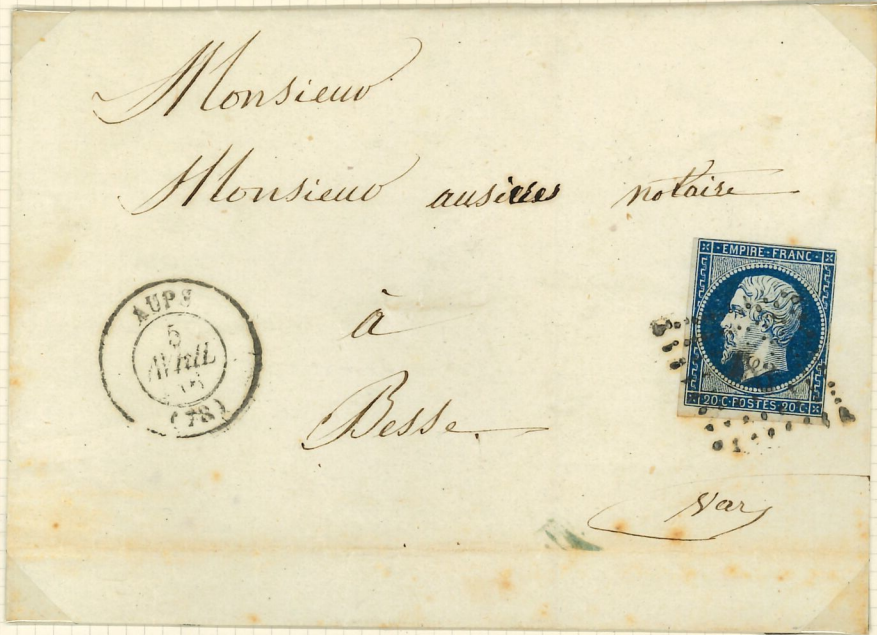 Monsieur
Monsieur ausiées notaire
à
Besse
Var
AUPS
5
AVRIL
(78)
EMPIRE · FRANC ·
20 · C · POSTES · 20 C ·